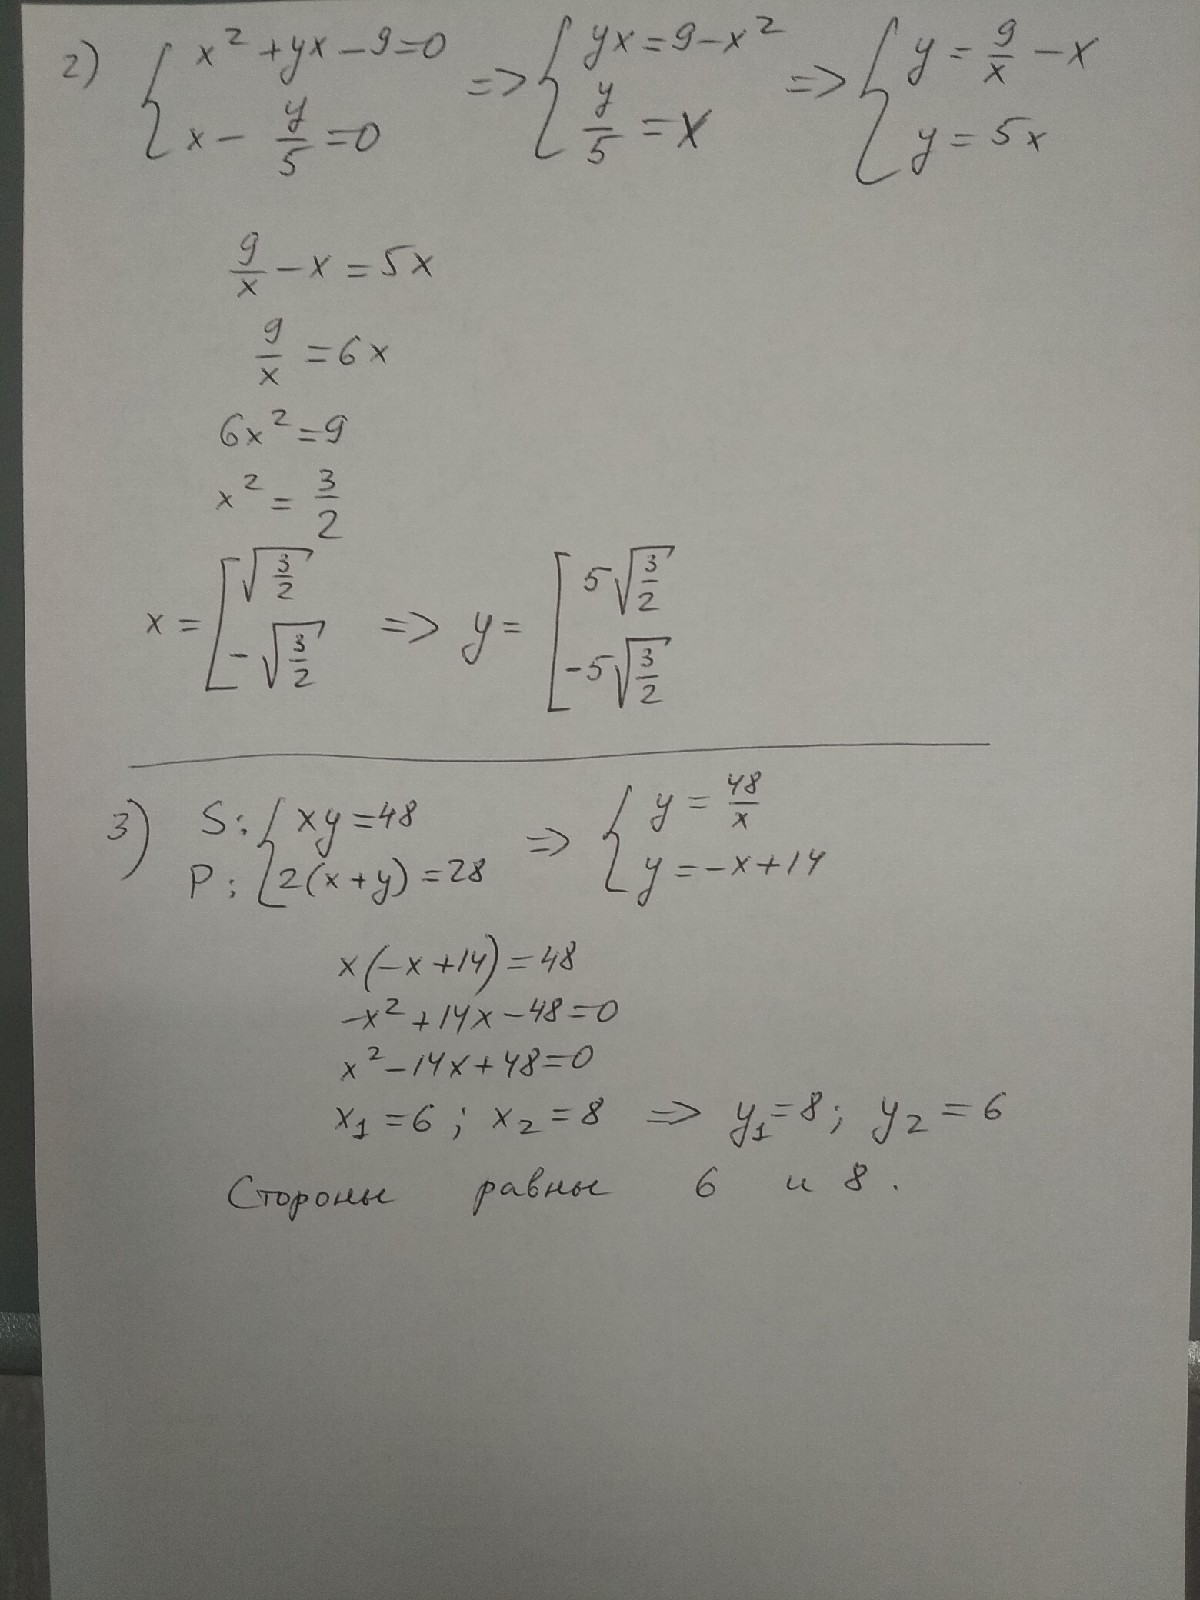 2) { x² + yx - 9 = 0 => { yx = 9 - x² => { y = 9/x - x
x - y/5 = 0 y/5 = x y = 5x
9/x - x = 5x
9/x = 6x
6x² = 9
x² = 3/2
x = [ √(3/2) => y = [ 5√(3/2)
-√(3/2) -5√(3/2)
3) S: { xy = 48 => { y = 48/x
P: 2(x + y) = 28 y = -x + 14
x(-x + 14) = 48
-x² + 14x - 48 = 0
x² - 14x + 48 = 0
x₁ = 6 ; x₂ = 8 => y₁ = 8; y₂ = 6
Стороны равны 6 и 8 .